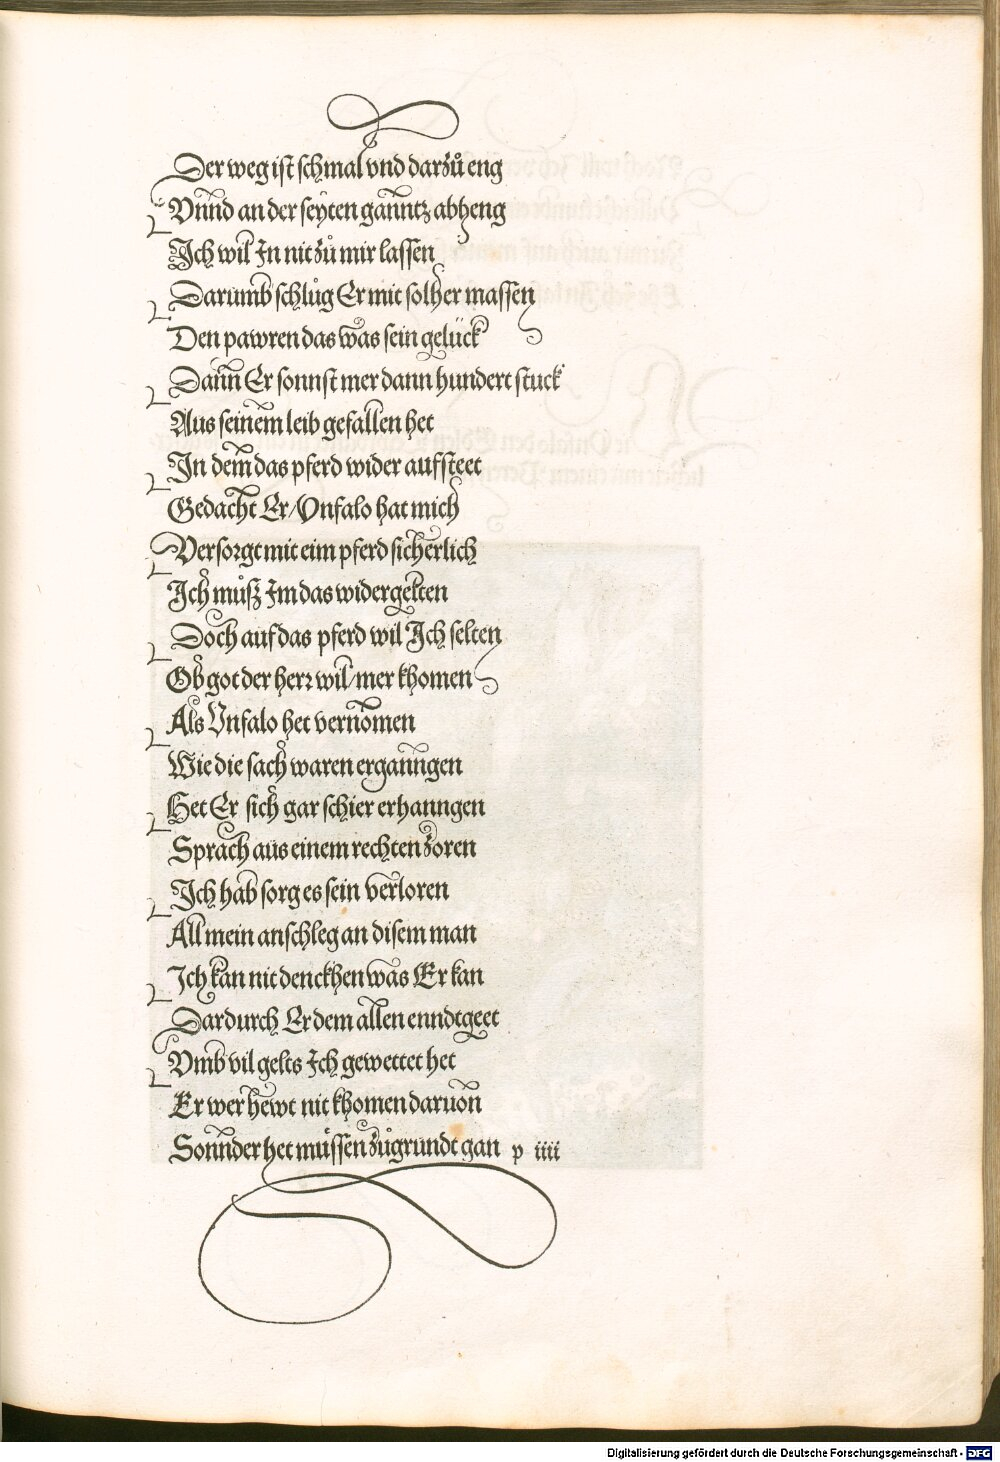 Der weg ist schmal vnd darzů eng
Vnnd an der seyten ganntz abheng
Ich wil In nit zů mir lassen
Darumb schlůg Er mit solher massen
Den pawren das was sein gelück
Dann Er sonnst mer dann hundert stuck
Aus seinem leib gefallen het
In dem das pferd wider aufsteet
Gedacht Er/Vnfalo hat mich
Versorgt mit eim pferd sicherlich
Ich můsz Im das widergelten
Doch auf das pferd wil Ich selten
Ob got der herr wil/mer khomen
Als Vnfalo het vernomen
Wie die sach waren erganngen
Het Er sich gar schier erhanngen
Sprach aus einem rechten zoren
Ich hab sorg es sein verloren
All mein anschleg an disem man
Ich kan nit denckhen was Er kan
Dardurch Er dem allen enndtgeet
Vmb vil gelts Ich gewettet het
Er wer hewt nit khomen daruon
Sonnder het můssen zůgrundt gan p iiii
Digitalisierung gefördert durch die Deutsche Forschungsgemeinschaft - DFG